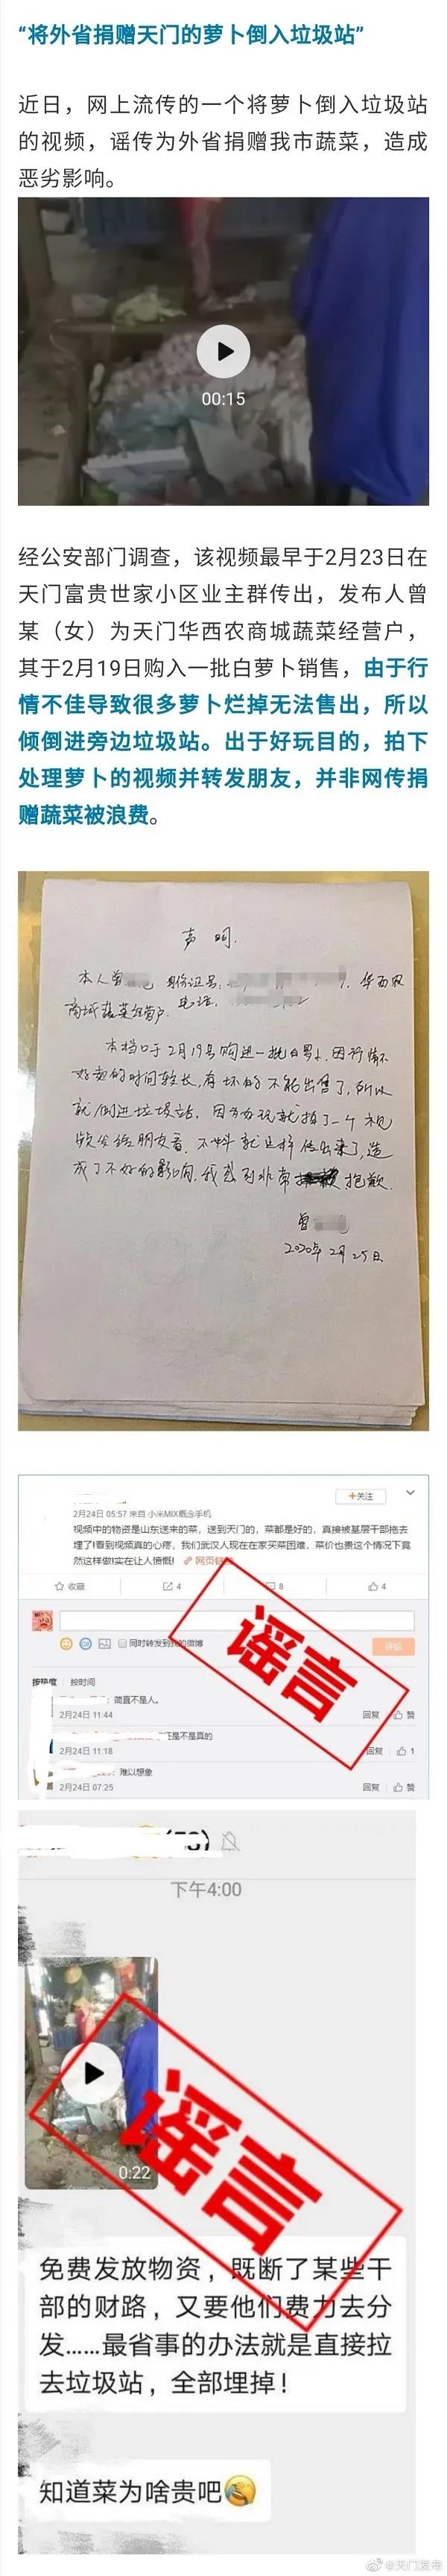 “将外省捐赠天门的萝卜倒入垃圾站”
近日，网上流传的一个将萝卜倒入垃圾站
的视频，谣传为外省捐赠我市蔬菜，造成
恶劣影响。
00:15
经公安部门调查，该视频最早于2月23日在
天门富贵世家小区业主群传出，发布人曾
某（女）为天门华西农商城蔬菜经营户，
其于2月19日购入一批白萝卜销售，由于行
情不佳导致很多萝卜烂掉无法售出，所以
倾倒进旁边垃圾站。出于好玩目的，拍下
处理萝卜的视频并转发朋友，并非网传捐
赠蔬菜被浪费。
声明.
本人曾 身份证号: 华西农
商城蔬菜经营户. 电话.
本档口于2月19号购进一批白萝卜.因行情不
好卖的时间较长,有坏的不能出售了,所以
就倒进垃圾站.因为好玩就拍了一个视
频发给朋友看.不料就这样传出来了,造
成了不好的影响,我感到非常 抱歉.
曾
2020年2月25日
+关注
2月24日 05:57 来自 小米MIX概念手机
视频中的物资是山东送来的菜，送到天门的，菜都是好的，真接被基层干部拖去
埋了!看到视频真的心疼，我们武汉人现在在家买菜困难，菜价也贵这个情况下竟
然这样做!实在让人愤慨! 网页链
收藏 4 8 4
同时转发到我的微博 评论
按热度 按时间
: 简直不是人。
2月24日 11:44 回复 赞
是不是真的
2月24日 11:18 回复 1
: 难以想象
2月24日 07:25 回复 赞
谣言
下午4:00
0:22
谣言
免费发放物资，既断了某些干
部的财路，又要他们费力去分
发……最省事的办法就是直接拉
去垃圾站，全部埋掉！
知道菜为啥贵吧😂
@天门发布